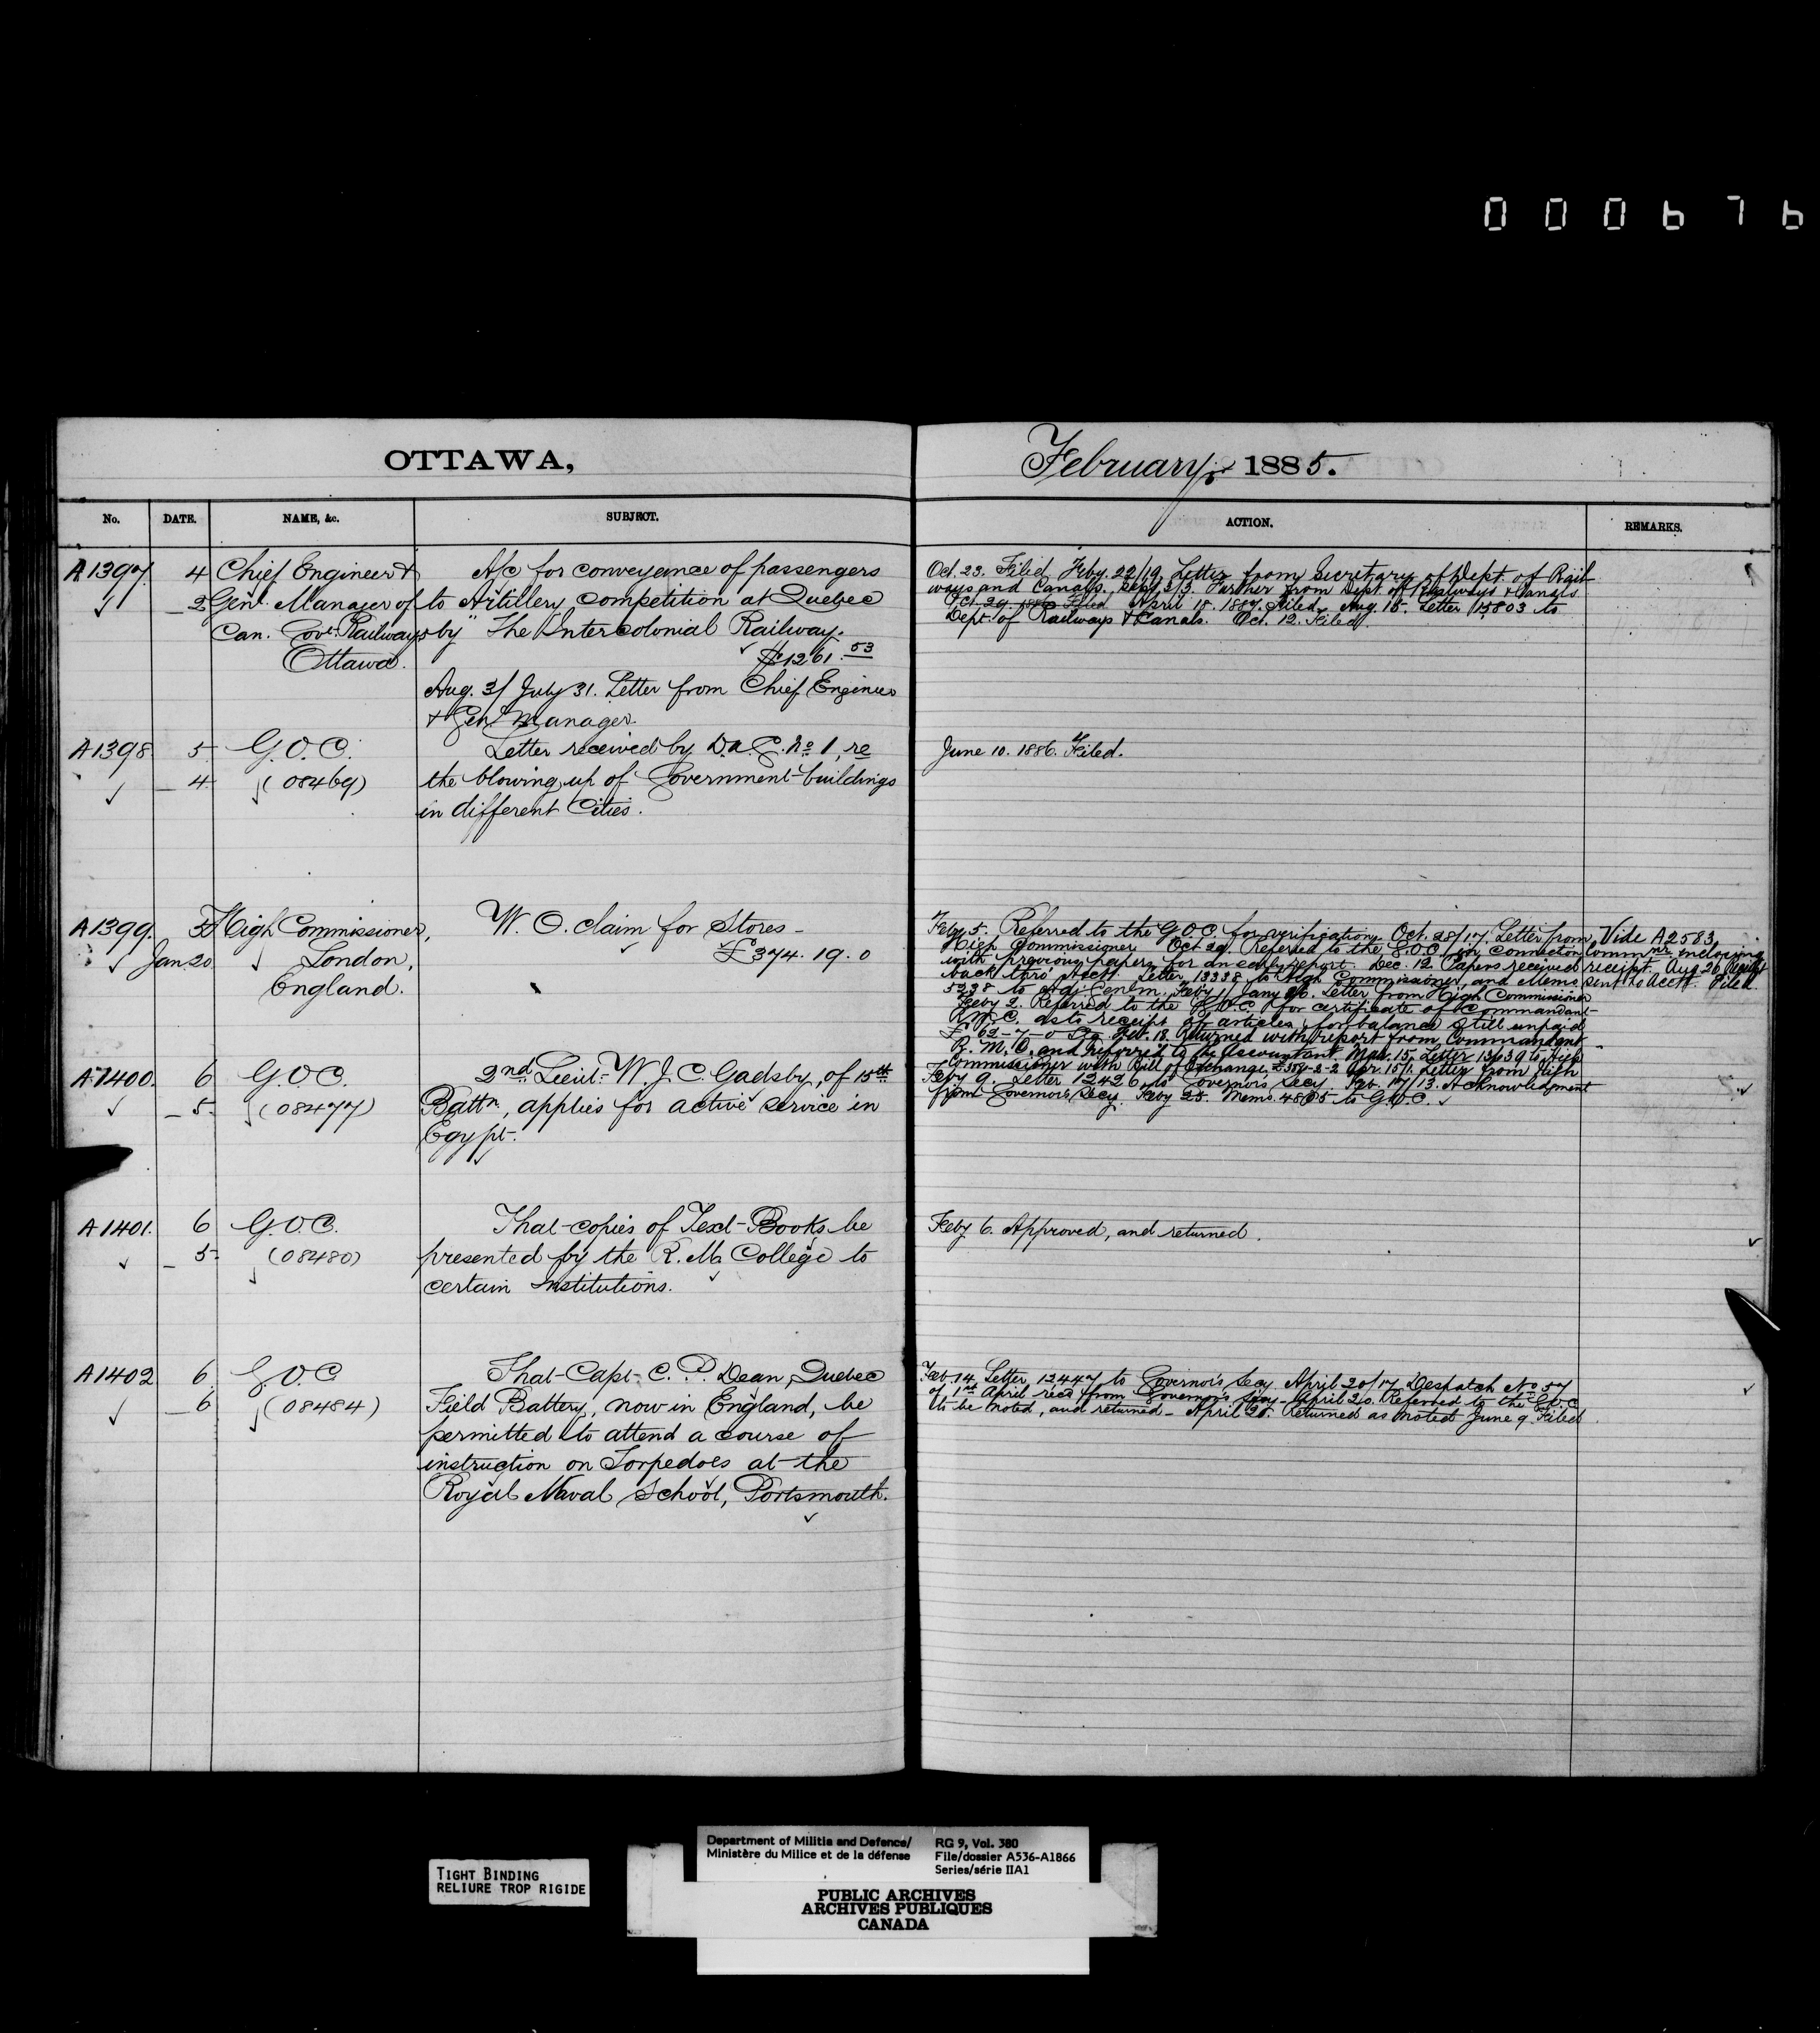 000676
OTTAWA,
February, 1885.
No. DATE. NAME, &c. SUBJECT. ACTION. REMARKS.
A1397. 4 Chief Engineer & A/c for conveyance of passengers
2 Genl. Manager of to Artillery competition at Quebec
Can. Govt. Railways by "The Intercolonial Railway.
Ottawa. $1261.53
Aug. 3/ July 31. Letter from Chief Engineer
& Genl Manager.
Oct. 23. Filed Feby. 22/19. Letter from Secretary of Dept. of Rail
ways and Canals. Sept. 3/3. Further from Dept. of Railways & Canals
Oct. 29. 1886 Filed April 18. 1887. Filed. Aug. 18. Letter 15803 to
Dept. of Railways & Canals. Oct. 12. Filed.
A1398 5 G.O.C. Letter received by D.A.G. No 1, re
4 (08469) the blowing up of Government buildings
in different Cities.
June 10. 1886. Filed.
A1399. 5 High Commissioner, W. O. claim for Stores -
Jan 20 London, £374. 19. 0
England.
Feby 5. Referred to the G.O.C. for verification. Oct. 28/17. Letter from
High Commissioner Oct 29. Referred to the G.O.C. in connection
with previous papers for an early report. Dec. 12. Papers received
back thro' Acctt. Letter 13338 to High Commissioner, and Memo
5238 to Adj. Genlm. Feby 1/ Jany Letter from High Commissioner
Feby 2. Referred to the G.O.C. for certificate of Commandant
R.M.C. as to receipt of articles, for balance still unpaid
£ 62-7-0 Feb. 18. Returned with report from Commandant
R.M.C. and referred to the Accountant. Mar. 15. Letter 13639 to High
Commissioner with Bill of Exchange, Apr. 15/1. Letter from High
Vide A2583
Commnr. inclosing
receipt. Aug 26 Receipt
sent to Acctt. Filed
A1400. 6 G.O.C. 2nd Lieut. W. J. C. Gadsby, of 15th
5 (08477) Battn., applies for active service in
Egypt.
Feby 9. Letter 12426 to Governor's Secy. Feb. 17/13. Acknowledgment
from Governor's Secy. Feby 25. Memo. 4805 to G.O.C.
A1401. 6 G.O.C. That copies of Text-Books be
5 (08480) presented by the R. M. College to
certain Institutions.
Feby 6. Approved, and returned.
A1402 6 G.O.C That Capt. C. P. Dean, Quebec
6 (08484) Field Battery, now in England, be
permitted to attend a course of
instruction on Torpedoes at the
Royal Naval School, Portsmouth.
Feb 14. Letter 12447 to Governor's Secy April 20/17 Despatch No 57
of 1st April recd from Governor's Secy - April 20. Referred to the G.O.C
to be noted, and returned - April 21. Returned as noted June 9 Filed
TIGHT BINDING
RELIURE TROP RIGIDE
Department of Militia and Defence/
Ministère du Milice et de la défense
RG 9, Vol. 380
File/dossier A536-A1866
Series/série IIA1
PUBLIC ARCHIVES
ARCHIVES PUBLIQUES
CANADA